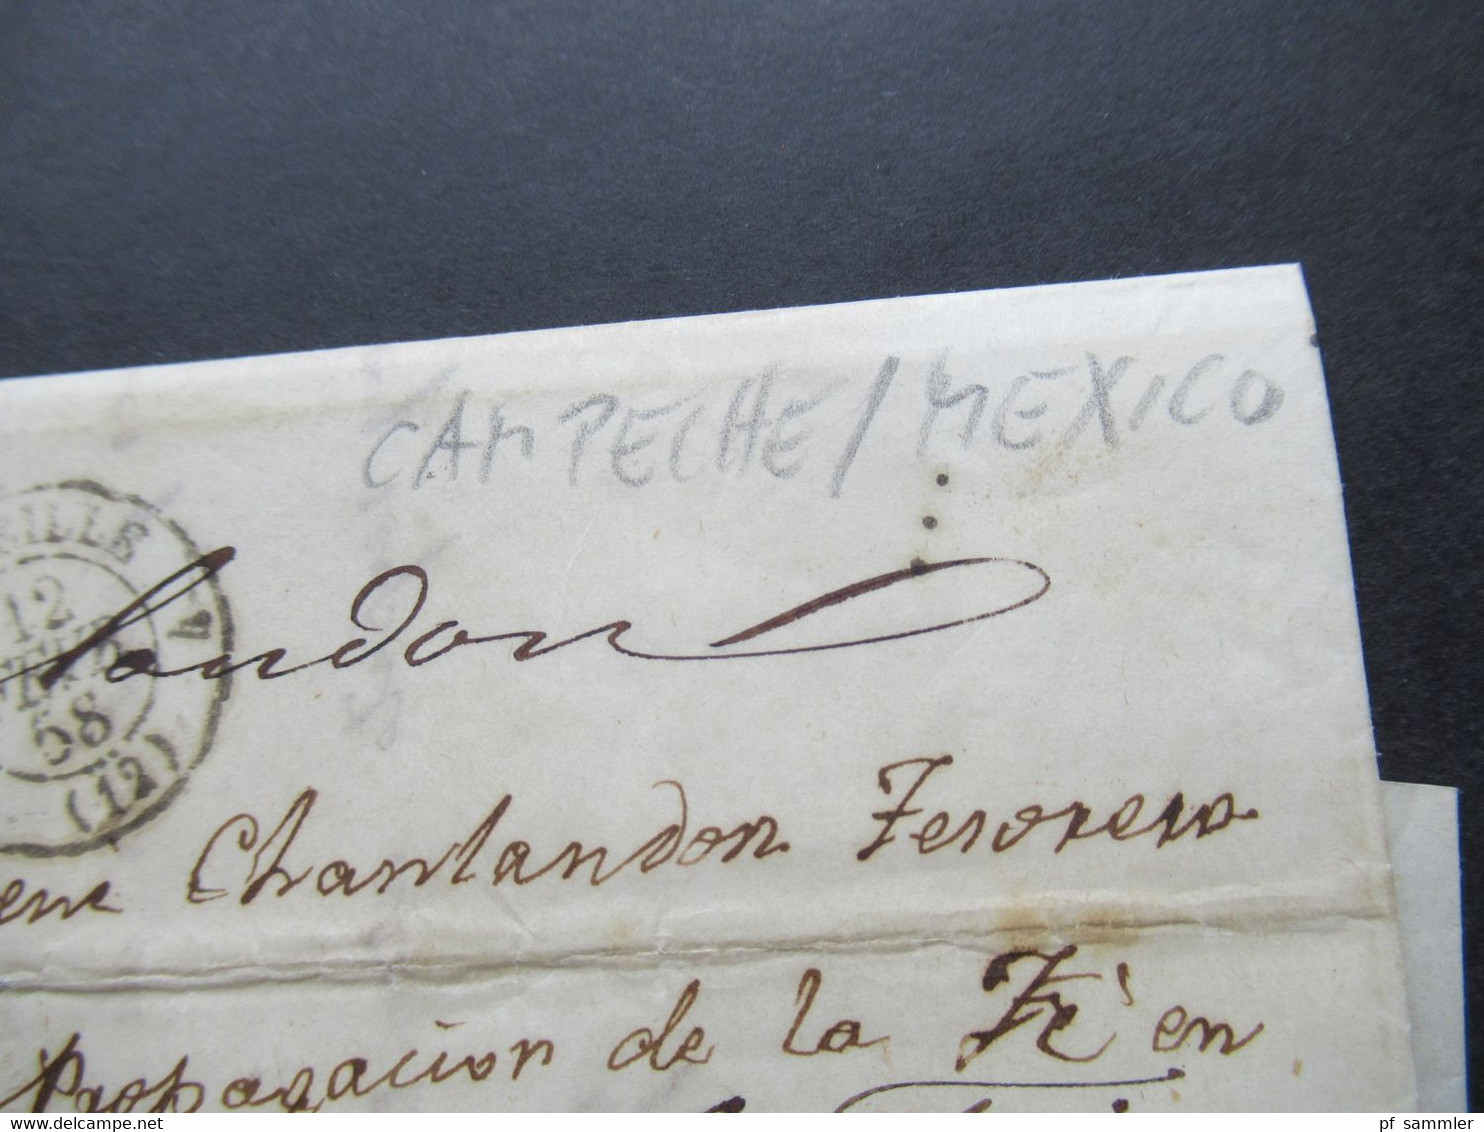 CAMPECHE / MEXICO
12
58
(12)
landon
Chanlandon Tesorero
Propagacion de la Fè en
delcampe.net
pf_sammler